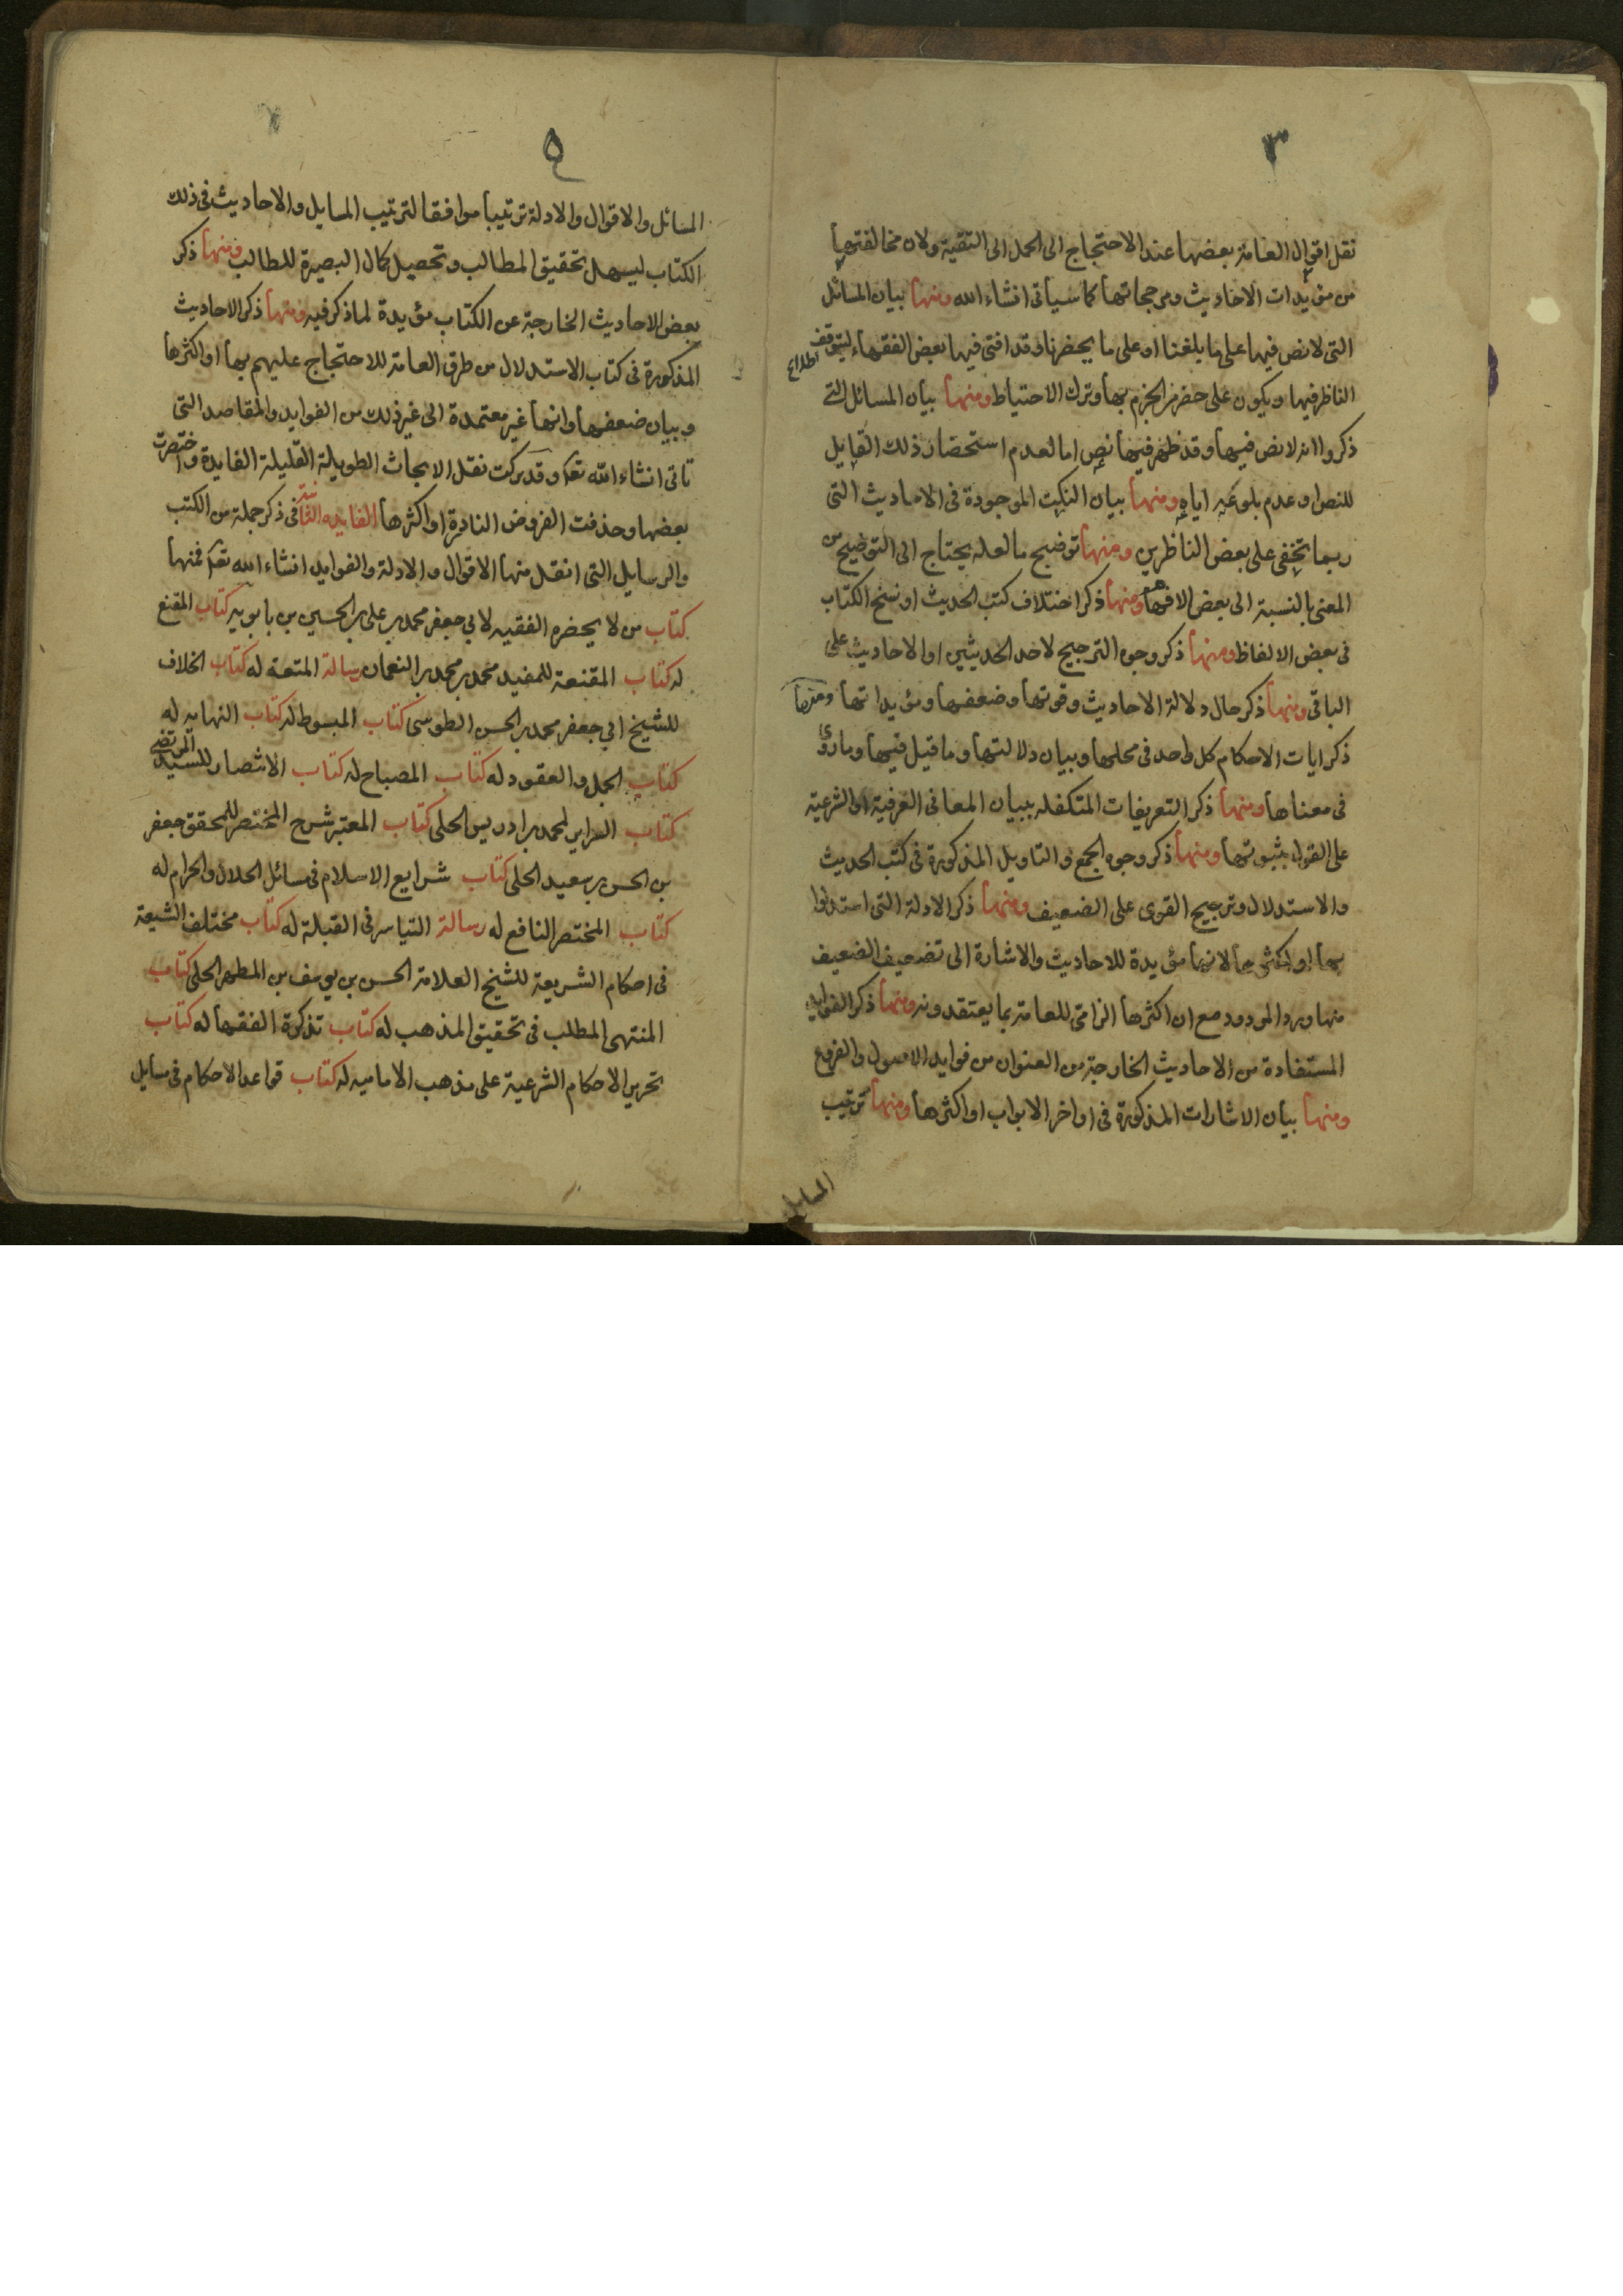 ٣
نقل اقوال العامة بعضها عند الاحتجاج الى الحمل الى التقية ولان مخالفتها
من مؤيدات الاحاديث ومرجحاتها كما سياتى انشاء الله ومنها بيان المسائل
التى لا نص فيها على ما بلغنا او على ما يحضرنا وقد افتى فيها بعض الفقهاء ليتوقف
اطلاع
الناظر فيها ويكون على حذر من الجزم بها وترك الاحتياط ومنها بيان المسائل التى
ذكروا انه لا نص فيها وقد ظهر فيها نص اما لعدم استحضار ذلك القايل
للنص او عدم بلوغه اياه ومنها بيان النكت الموجودة فى الاحاديث التى
ربما تخفى على بعض الناظرين ومنها توضيح ما لعله يحتاج الى التوضيح من
المعنى بالنسبة الى بعض الافهام ومنها ذكر اختلاف كتب الحديث او نسخ الكتاب
فى بعض الالفاظ ومنها ذكر وجوه الترجيح لاحد الحديثين او الاحاديث على
الباقى ومنها ذكر حال دلالة الاحاديث وقوتها وضعفها ومؤيداتها ومنها
ذكر ايات الاحكام كل واحد فى محلها وبيان دلالتها وما قيل فيها وما روى
فى معناها ومنها ذكر التعريفات المتكفله ببيان المعانى العرفية او الشرعية
على القول بثبوتها ومنها ذكر وجوه الجمع والتاويل المذكورة فى كتب الحديث
والاستدلال وترجيح القوى على الضعيف ومنها ذكر الادلة التى استدلوا
بها او اكثرها لانها مؤيدة للاحاديث والاشارة الى تضعيف الضعيف
منها ورد المردود مع ان اكثرها الزامى للعامة بما يعتقدونه ومنها ذكر الفوايد
المستفادة من الاحاديث الخارجة من العنوان من فوايد الاصول والفروع
ومنها بيان الاشارات المذكورة فى اواخر الابواب او اكثرها ومنها ترتيب
المسايل
٥
المسائل والاقوال والادلة ترتيبا موافقا لترتيب المسايل والاحاديث فى ذلك
الكتاب ليسهل تحقيق المطالب وتحصيل كمال البصيرة للطالب ومنها ذكر
بعض الاحاديث الخارجة عن الكتاب مؤيدة لما ذكر فيه ومنها ذكر الاحاديث
المذكورة فى كتاب الاستدلال من طرق العامة للاحتجاج عليهم بها او اكثرها
وبيان ضعفها وانها غير معتمدة الى غير ذلك من الفوايد والمقاصد التى
تاتى انشاء الله تعا وقد تركت نقل الابحاث الطويلة القليلة الفايدة واختصرت
بعضها وحذفت الفروض النادرة او اكثرها الفايده الثانية فى ذكر جملة من الكتب
والرسايل التى انقل منها الاقوال والادلة والفوايد انشاء الله تعا فمنها
كتاب من لا يحضره الفقيه لابي جعفر محمد بن على بن الحسين بن بابويه كتاب المقنع
له كتاب المقنعة للمفيد محمد بن محمد بن النعمان رسالة المتعة له كتاب الخلاف
للشيخ ابي جعفر محمد بن الحسن الطوسى كتاب المبسوط له كتاب النهايه له
كتاب الجمل والعقود له كتاب المصباح له كتاب الانتصار للسيد المرتضى
كتاب السراير لمحمد بن ادريس الحلى كتاب المعتبر شرح المختصر للمحقق جعفر
بن الحسن بن سعيد الحلى كتاب شرايع الاسلام فى مسائل الحلال والحرام له
كتاب المختصر النافع له رسالة التياسر فى القبلة له كتاب مختلف الشيعة
فى احكام الشريعة للشيخ العلامة الحسن بن يوسف بن المطهر الحلى كتاب
المنتهى المطلب فى تحقيق المذهب له كتاب تذكرة الفقها له كتاب
تحرير الاحكام الشرعية على مذهب الاماميه له كتاب قواعد الاحكام فى مسايل